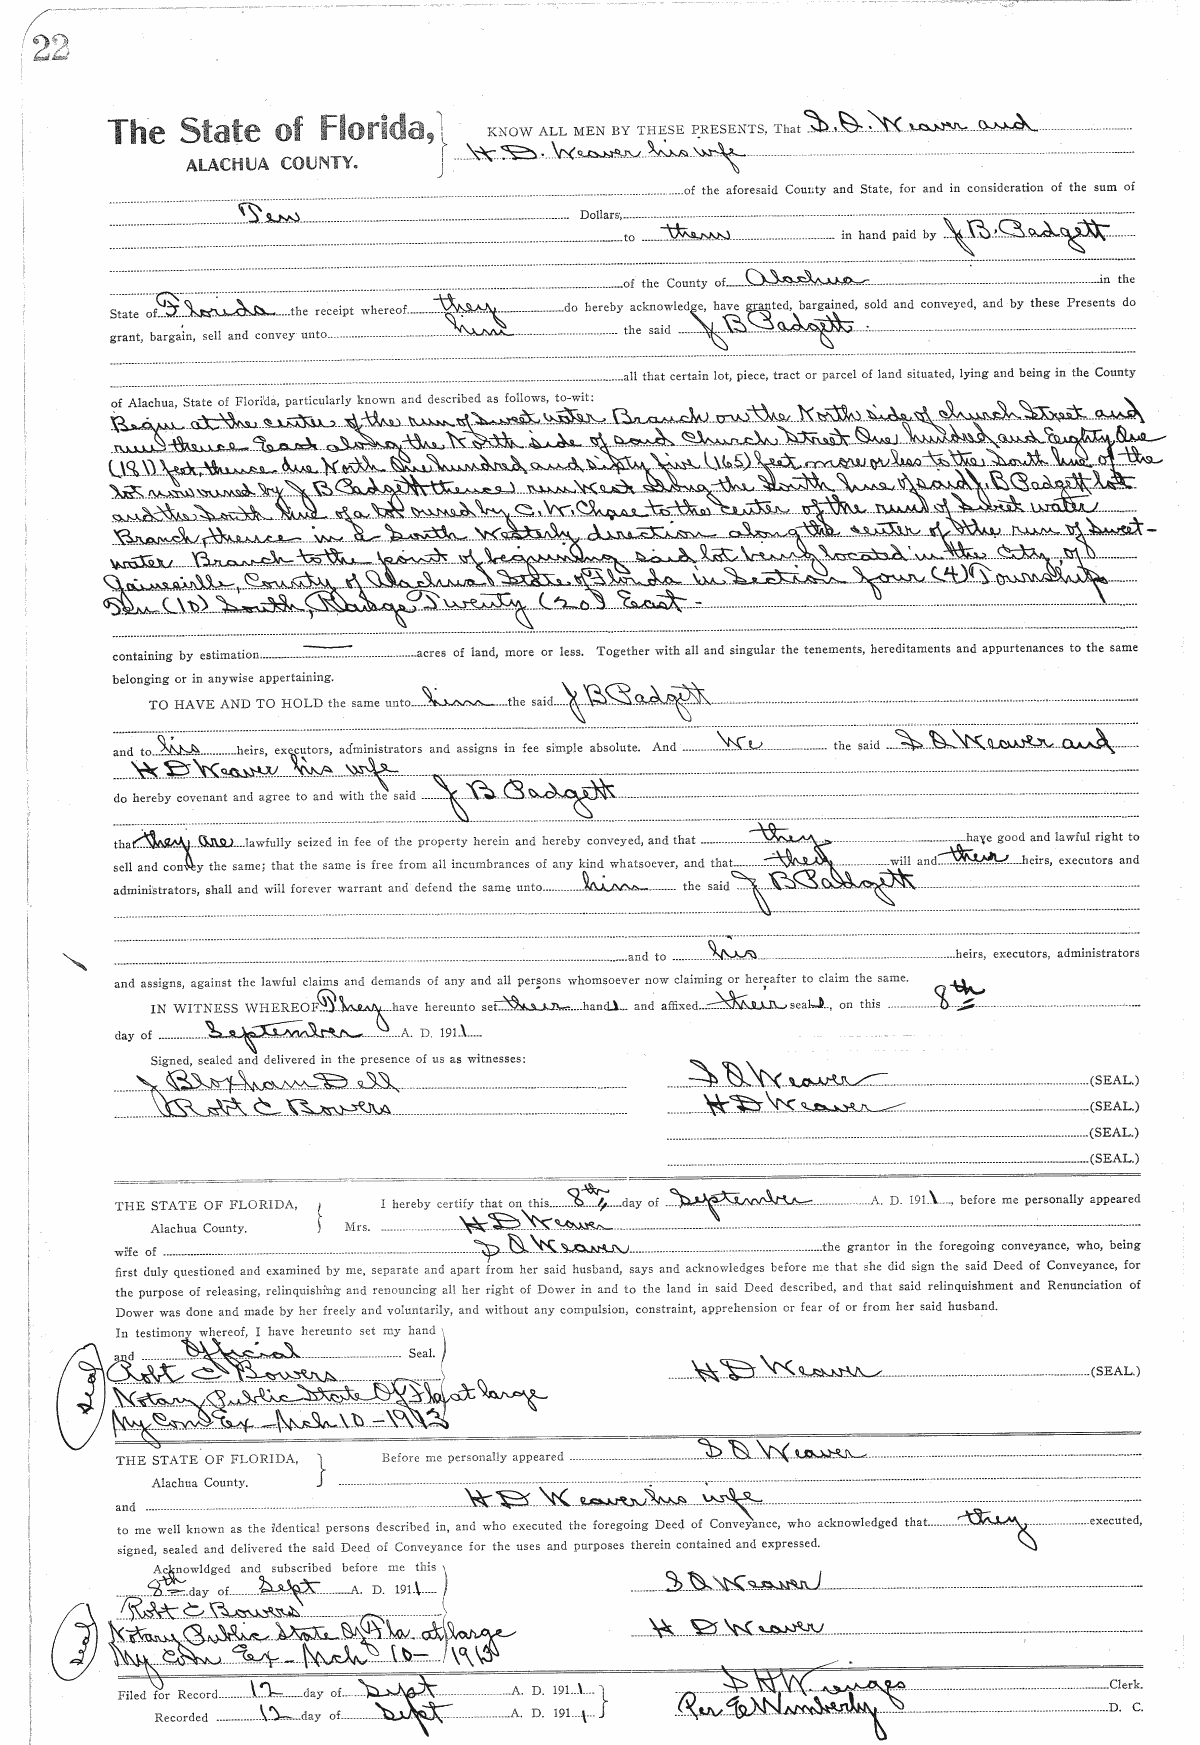 22
The State of Florida,
ALACHUA COUNTY.
KNOW ALL MEN BY THESE PRESENTS, That S. O. Weaver and
H. D. Weaver his wife
of the aforesaid County and State, for and in consideration of the sum of
Ten Dollars,
to them in hand paid by J B. Padgett
of the County of Alachua in the
State of Florida the receipt whereof they do hereby acknowledge, have granted, bargained, sold and conveyed, and by these Presents do
grant, bargain, sell and convey unto him the said J B Padgett
all that certain lot, piece, tract or parcel of land situated, lying and being in the County
of Alachua, State of Florida, particularly known and described as follows, to-wit:
Begin at the center of the run of Sweet water Branch on the North side of church Street and
run thence East along the North side of said Church Street One hundred and Eighty One
(181) feet, thence due North One hundred and sixty five (165) feet more or less to the South line of the
lot now owned by J B Padgett thence run West along the South line of said J. B Padgett lot
and the South line of a lot owned by C. W. Chase to the center of the run of Sweet water
Branch, thence in a South Westerly direction along the center of the run of Sweet-
water Branch to the point of beginning said lot being located in the City of
Gainesville, County of Alachua State of Florida in Section four (4) Township
Ten (10) South, Range Twenty (20) East -
containing by estimation acres of land, more or less. Together with all and singular the tenements, hereditaments and appurtenances to the same
belonging or in anywise appertaining.
TO HAVE AND TO HOLD the same unto him the said J B Padgett
and to his heirs, executors, administrators and assigns in fee simple absolute. And We the said S O Weaver and
H D Weaver his wife
do hereby covenant and agree to and with the said J B Padgett
that they are lawfully seized in fee of the property herein and hereby conveyed, and that they have good and lawful right to
sell and convey the same; that the same is free from all incumbrances of any kind whatsoever, and that they will and their heirs, executors and
administrators, shall and will forever warrant and defend the same unto him the said J B Padgett
and to his heirs, executors, administrators
and assigns, against the lawful claims and demands of any and all persons whomsoever now claiming or hereafter to claim the same.
IN WITNESS WHEREOF They have hereunto set their hands and affixed their seals, on this 8th
day of September A. D. 1911
Signed, sealed and delivered in the presence of us as witnesses:
J Bloxham Dell S O Weaver (SEAL.)
Robt C Bowers H D Weaver (SEAL.)
(SEAL.)
(SEAL.)
THE STATE OF FLORIDA, I hereby certify that on this 8th day of September A. D. 1911, before me personally appeared
Alachua County. Mrs. H D Weaver
wife of S O Weaver the grantor in the foregoing conveyance, who, being
first duly questioned and examined by me, separate and apart from her said husband, says and acknowledges before me that she did sign the said Deed of Conveyance, for
the purpose of releasing, relinquishing and renouncing all her right of Dower in and to the land in said Deed described, and that said relinquishment and Renunciation of
Dower was done and made by her freely and voluntarily, and without any compulsion, constraint, apprehension or fear of or from her said husband.
In testimony whereof, I have hereunto set my hand
and Official Seal.
Seal Robt C Bowers H D Weaver (SEAL)
Notary Public State Of Fla at large
My Com Ex - Mch 10 - 1913
THE STATE OF FLORIDA, Before me personally appeared S O Weaver
Alachua County.
and H D Weaver his wife
to me well known as the identical persons described in, and who executed the foregoing Deed of Conveyance, who acknowledged that they executed,
signed, sealed and delivered the said Deed of Conveyance for the uses and purposes therein contained and expressed.
Acknowldged and subscribed before me this
8th day of Sept A. D. 1911 S O Weaver
Robt C Bowers
Seal Notary Public State Of Fla. at large H D Weaver
My Com Ex - Mch 10 - 1913
Filed for Record 12 day of Sept A. D. 1911 S H Wienges Clerk.
Recorded 12 day of Sept A. D. 1911 Per E Wimberly D. C.